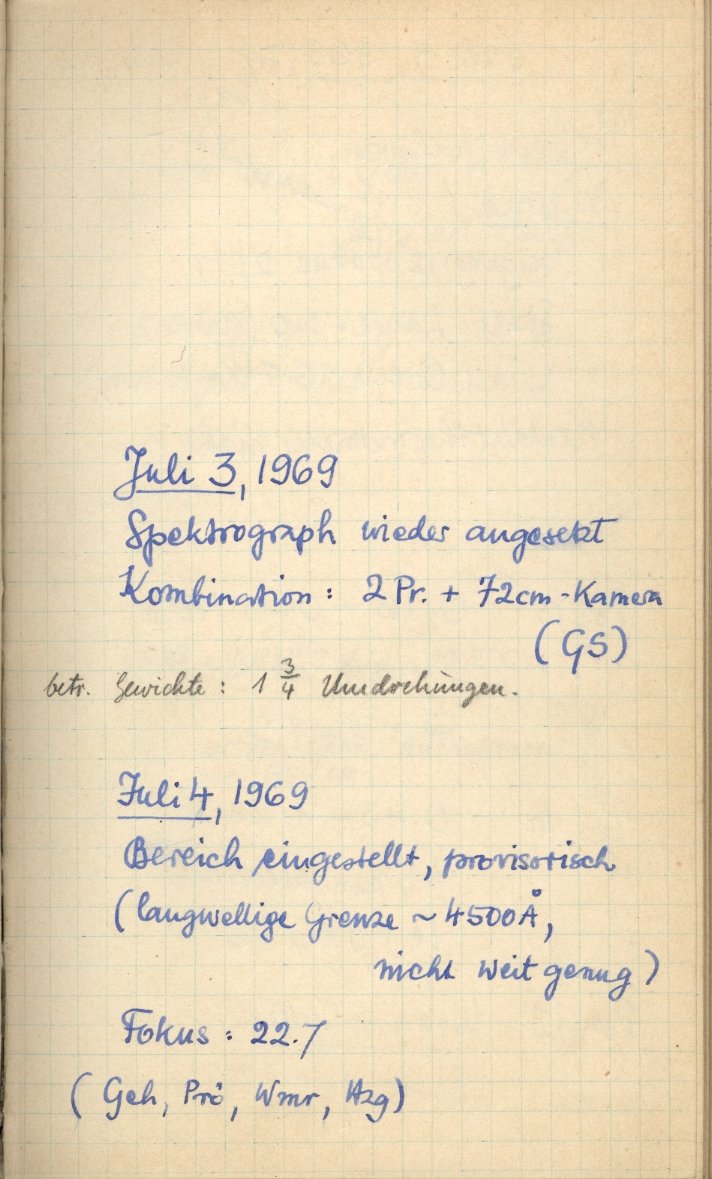 Juli 3, 1969
Spektrograph wieder angesetzt
Kombination: 2 Pr. + 72cm-Kamera
(GS)
betr. Gewichte: 1 3/4 Umdrehungen.
Juli 4, 1969
Bereich eingestellt, provisorisch
(langwellige Grenze ~ 4500 Å,
nicht weit genug)
Fokus: 22.7
(Geh, Prö, Wmr, Hzg)